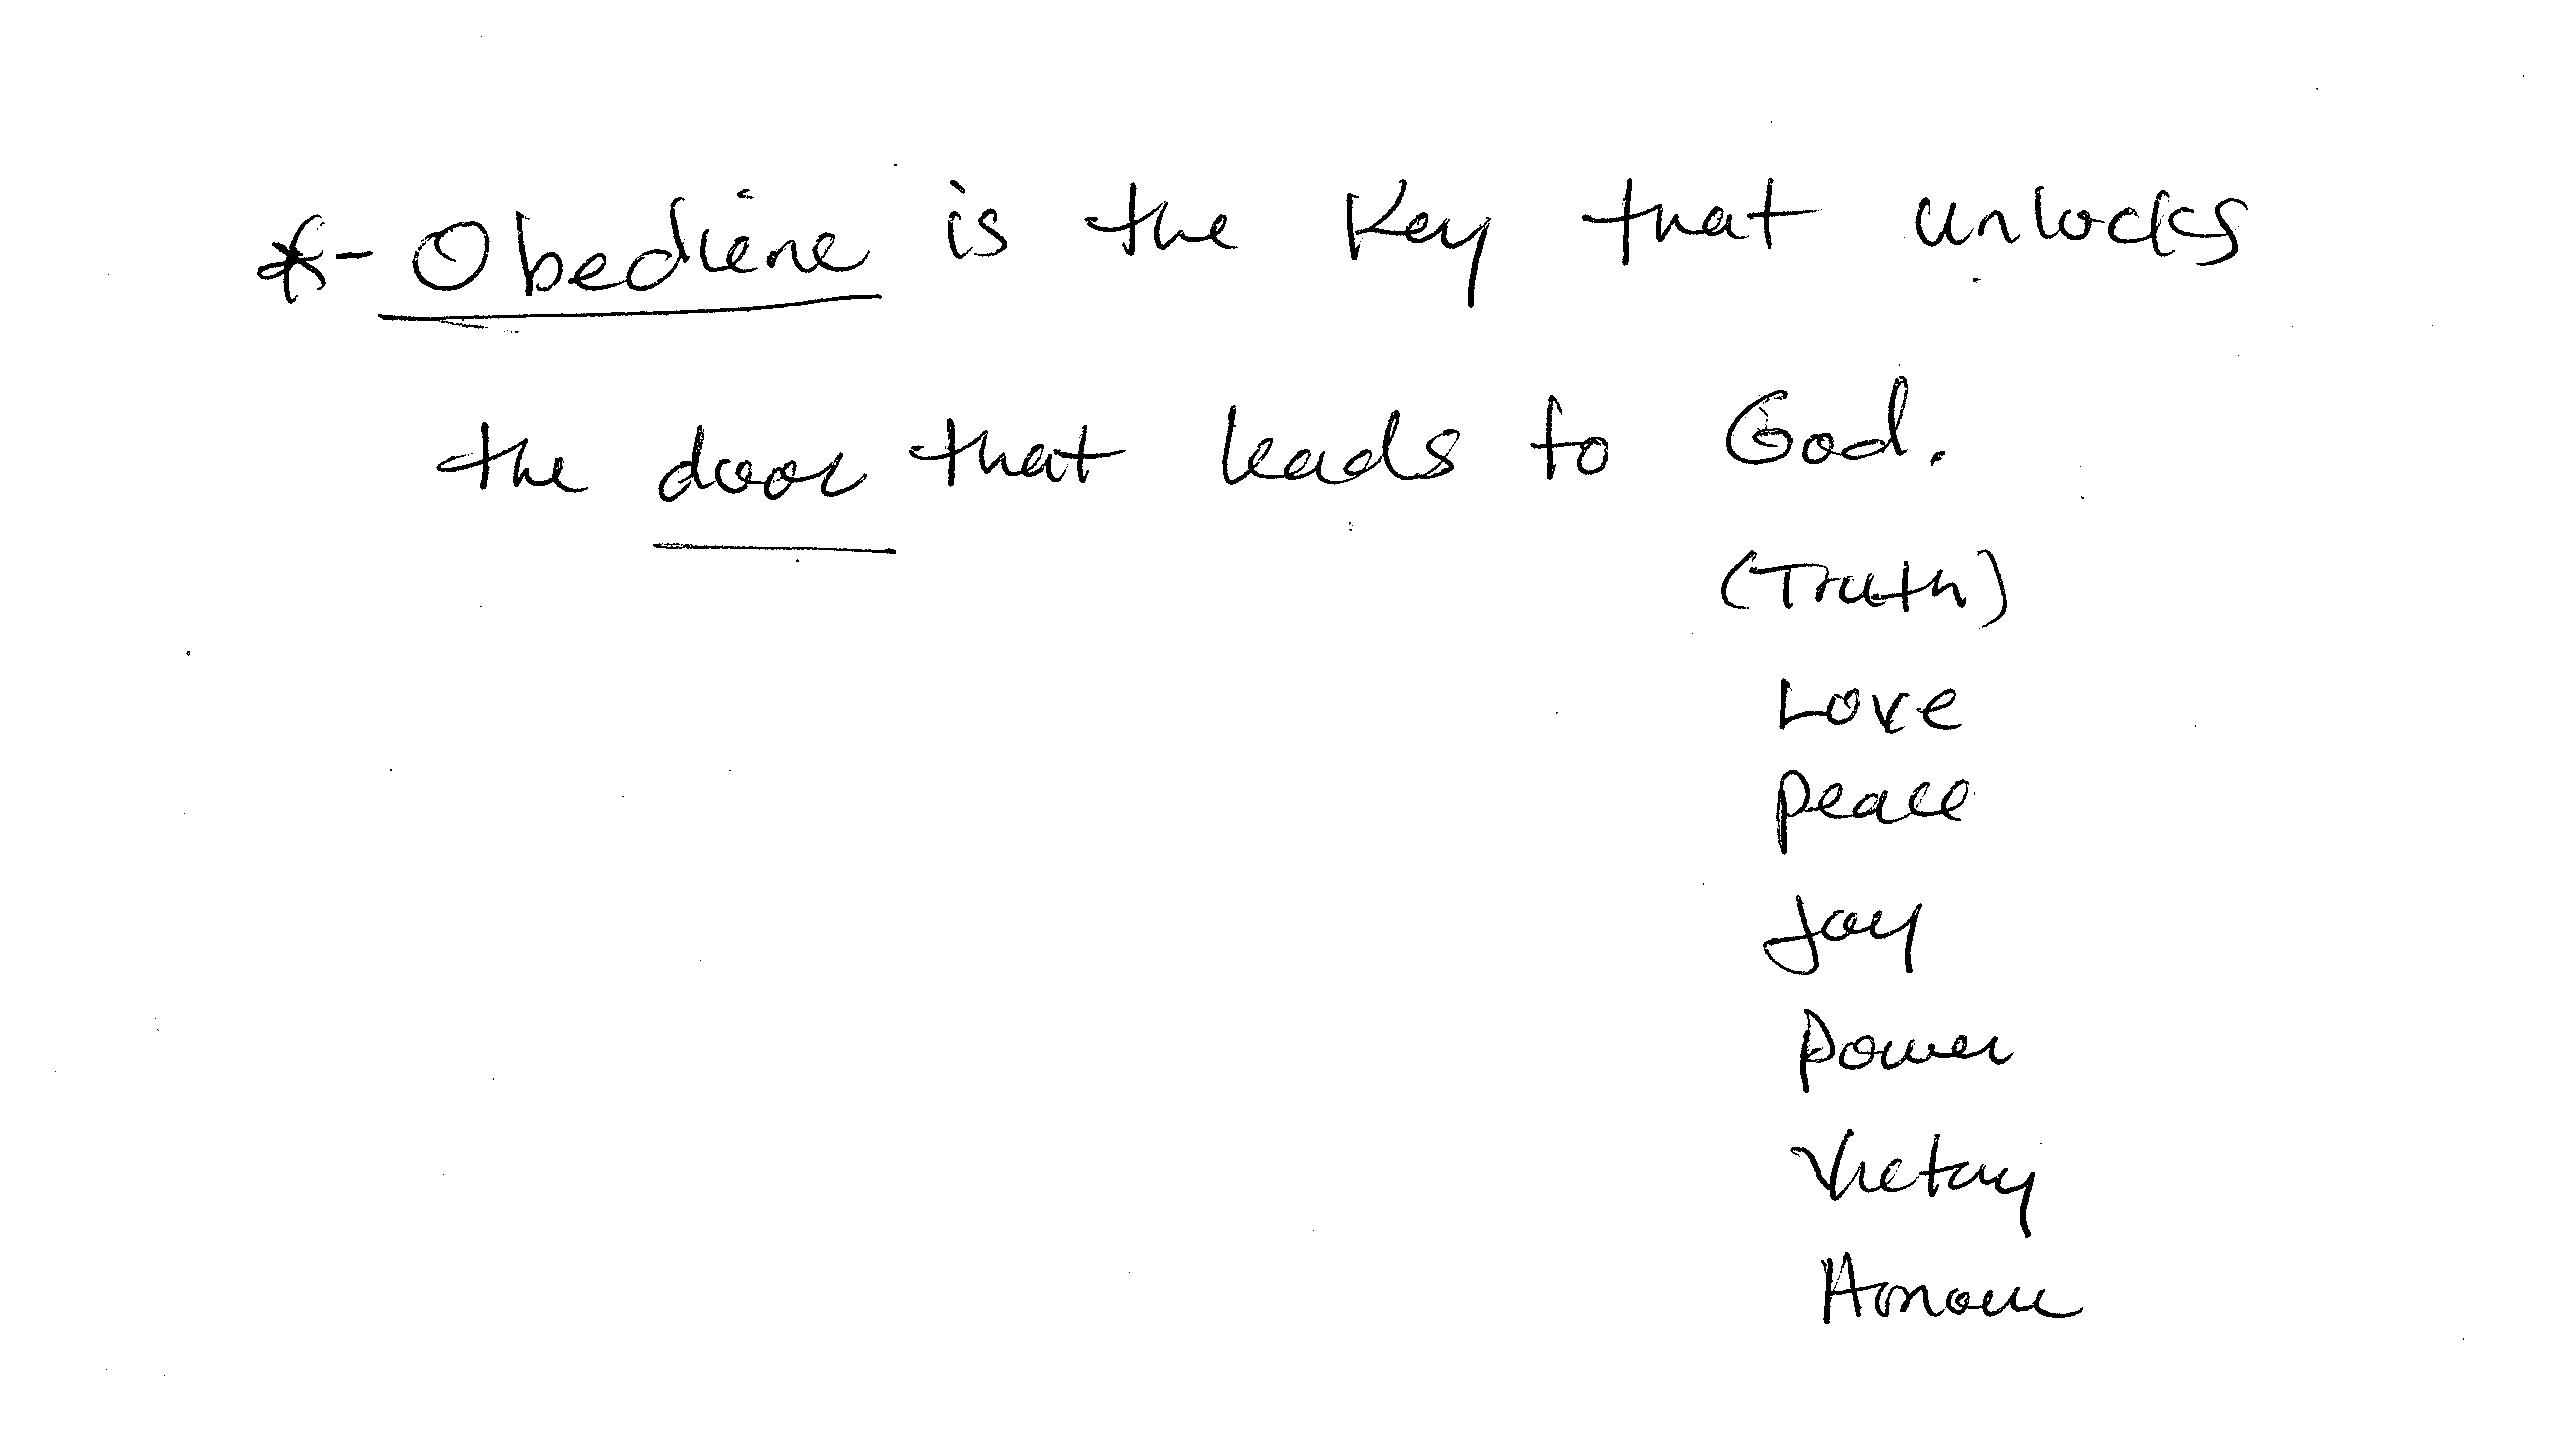 *- Obedience is the key that unlocks
the door that leads to God.
(Truth)
Love
Peace
Joy
Power
Victory
Honour